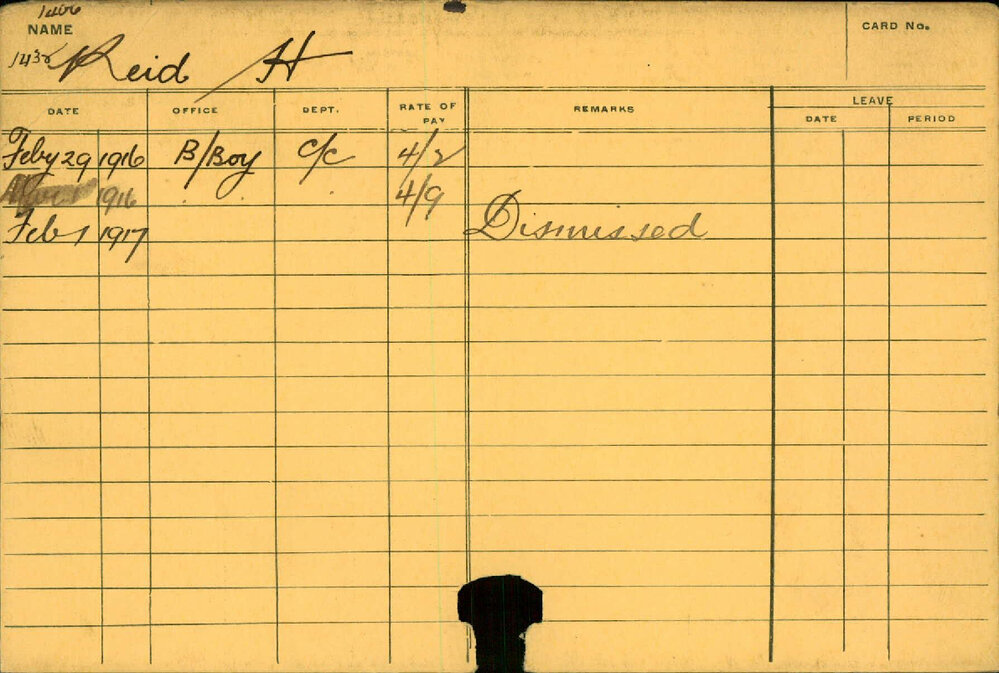 NAME
CARD No.
Reid H
DATE OFFICE DEPT. RATE OF PAY REMARKS LEAVE
DATE PERIOD
Feby 29 1916 B/Boy C/C 4/2
1916 4/9
Feb 1 1917 Dismissed